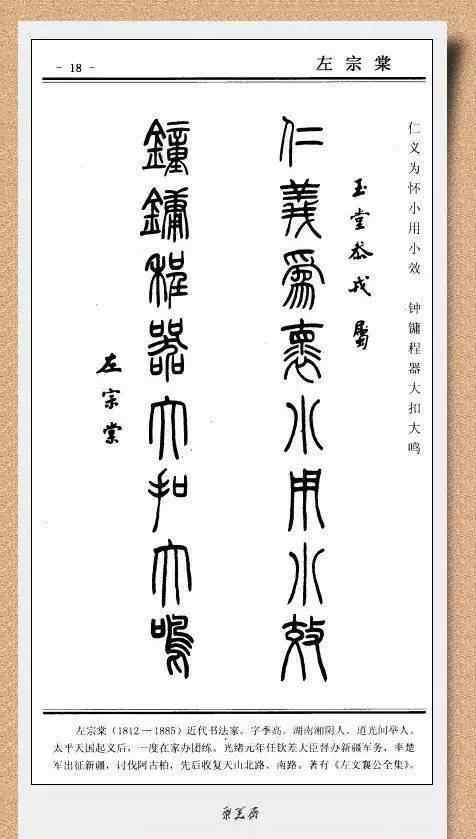 - 18 -
左宗棠
仁义为怀小用小效 钟镛程器大扣大鸣
玉堂叅戎屬
仁義爲褱小用小效
鐘鏞程器大扣大鳴
左宗棠
左宗棠（1812—1885）近代书法家。字季高，湖南湘阴人。道光间举人。
太平天国起义后，一度在家办团练。光绪元年任钦差大臣督办新疆军务，率楚
军出征新疆，讨伐阿古柏，先后收复天山北路、南路。著有《左文襄公全集》。